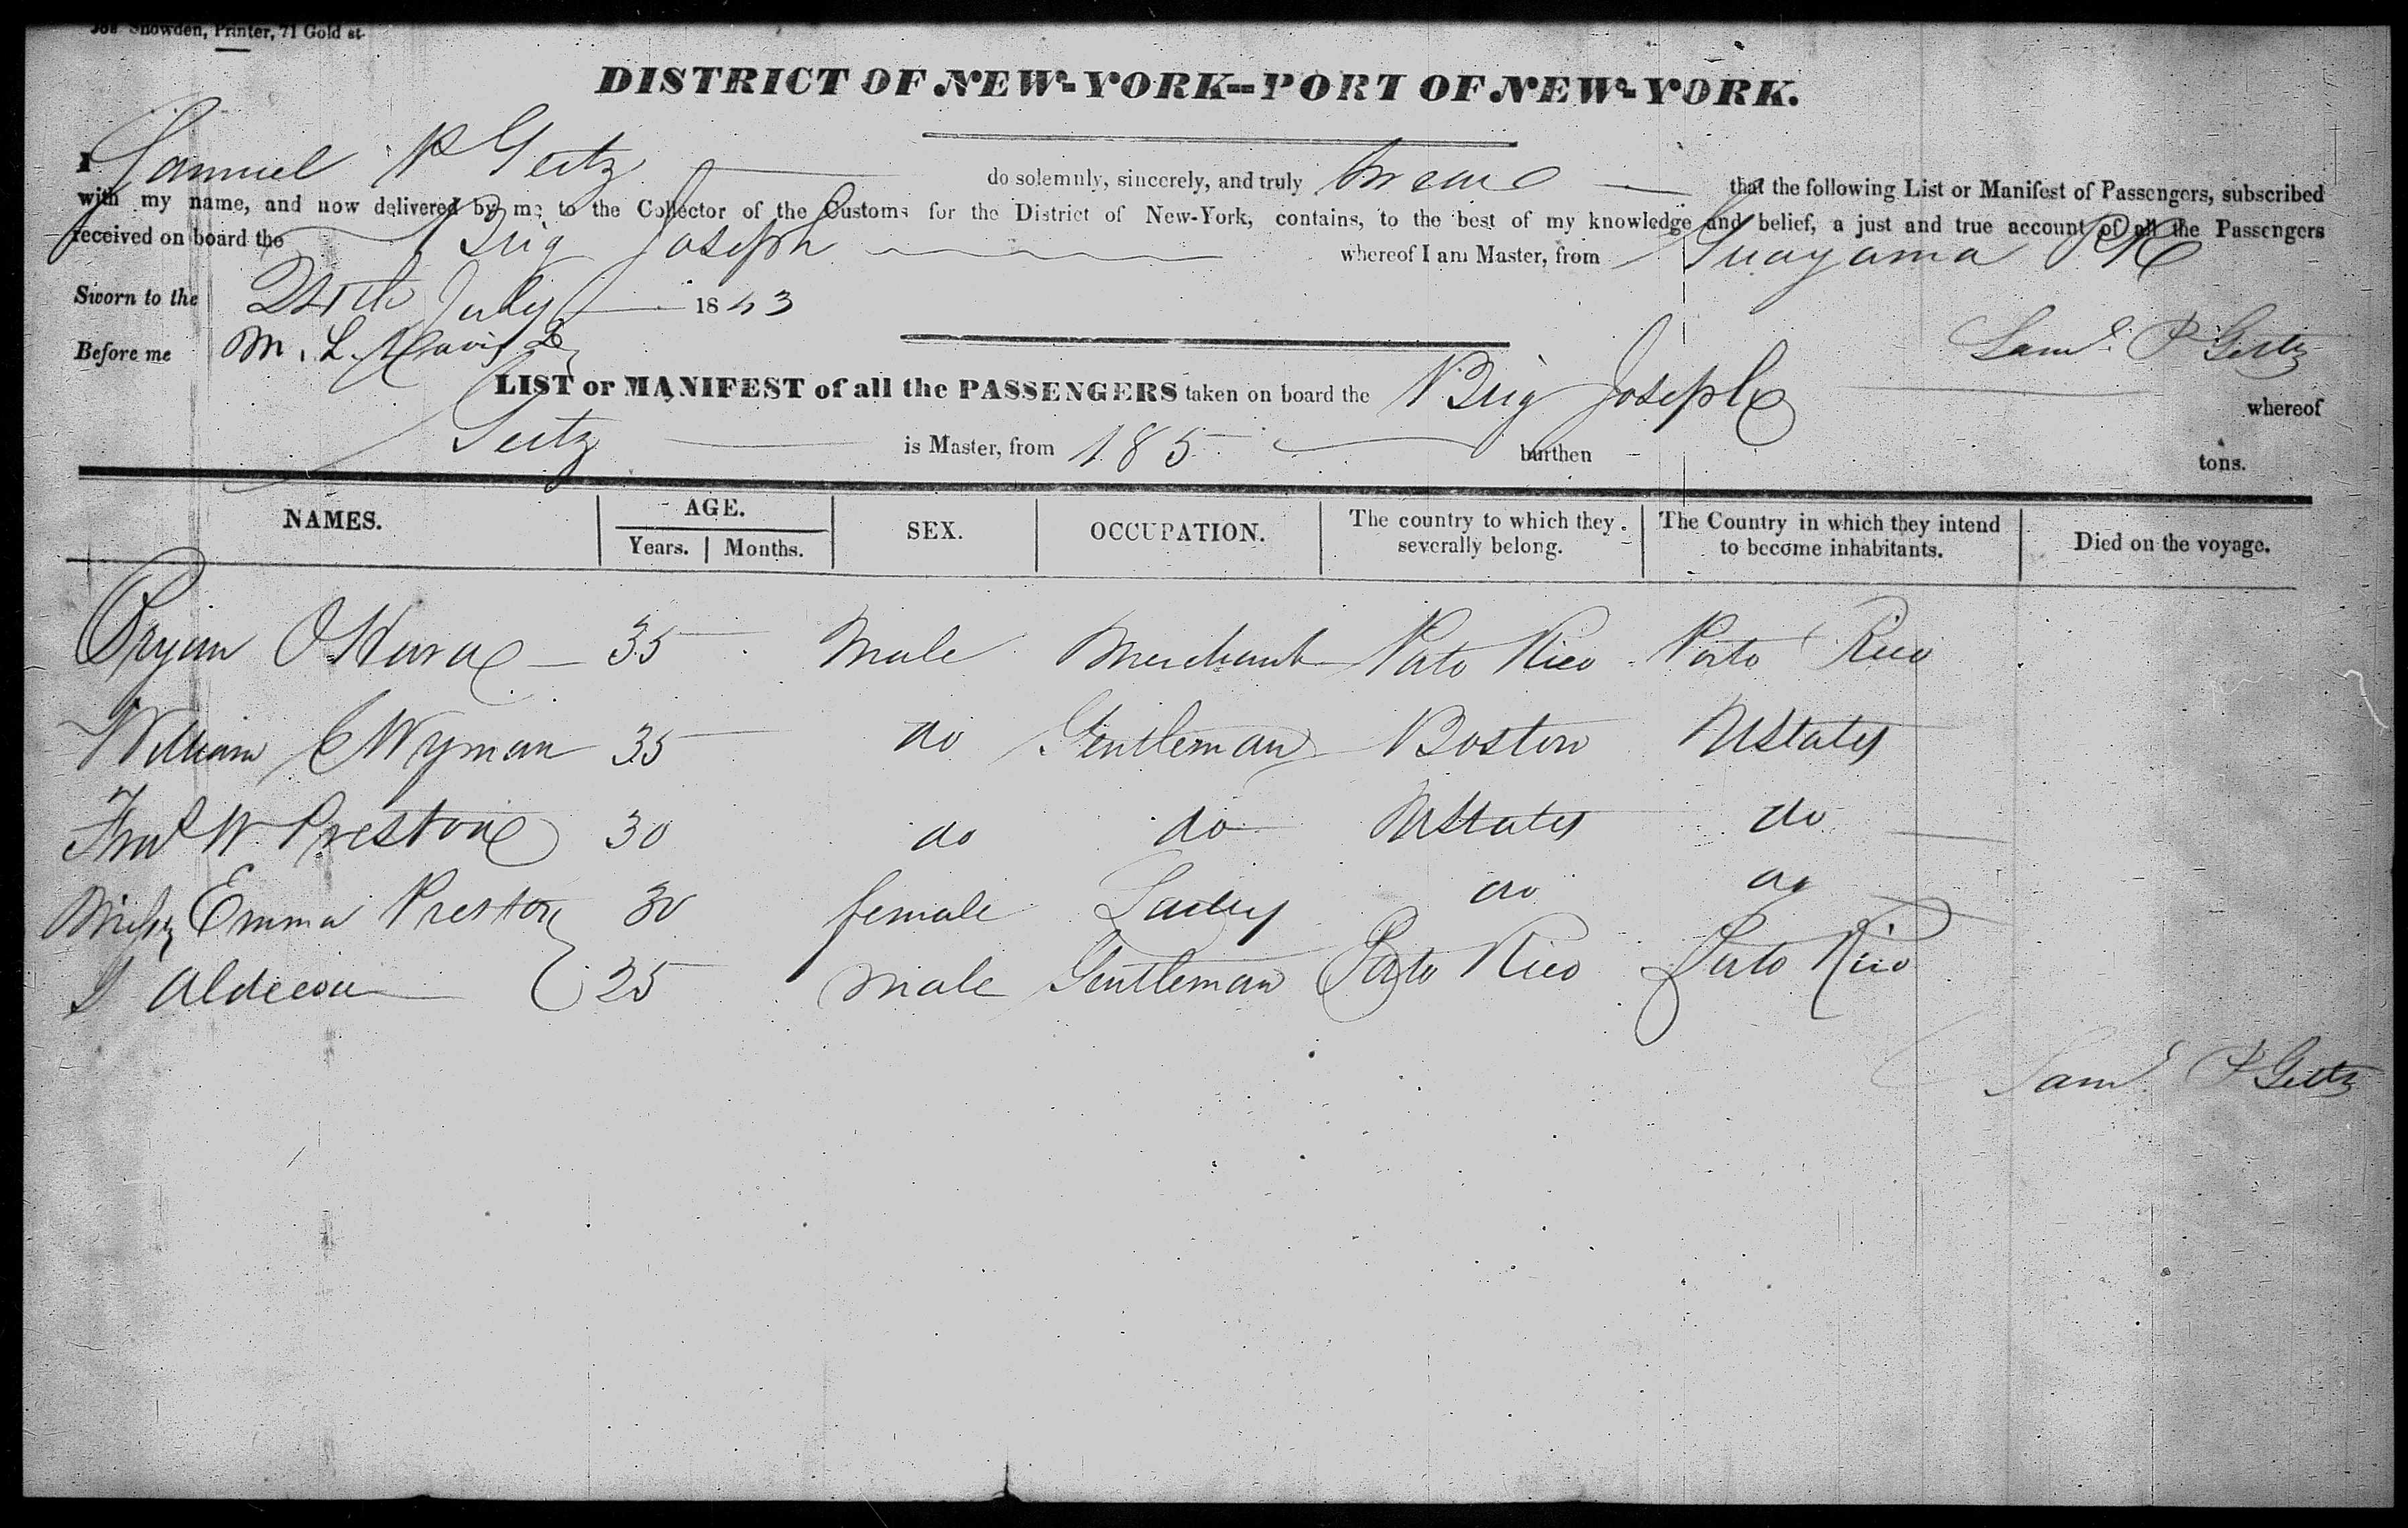 Snowden, Printer, 71 Gold st.
DISTRICT OF NEW-YORK--PORT OF NEW-YORK.
I Samuel P Geitz do solemnly, sincerely, and truly swear that the following List or Manifest of Passengers, subscribed
with my name, and now delivered by me to the Collector of the Customs for the District of New-York, contains, to the best of my knowledge and belief, a just and true account of all the Passengers
received on board the Brig Joseph whereof I am Master, from Guayama PR
Sworn to the 24th July 1843
Before me M. L. Davis Saml. P Geitz
LIST or MANIFEST of all the PASSENGERS taken on board the Brig Joseph whereof
Geitz is Master, from 185 burthen tons.
NAMES. AGE. Years. Months. SEX. OCCUPATION. The country to which they severally belong. The Country in which they intend to become inhabitants. Died on the voyage.
Bryan OHara 35 Male Merchant Porto Rico Porto Rico
William C Wyman 35 do Gentleman Boston UStates
W. Preston 30 do do UStates do
Emma Preston 30 female Lady do do
Aldecoa 25 male Gentleman Porto Rico Porto Rico
Saml. P Geitz